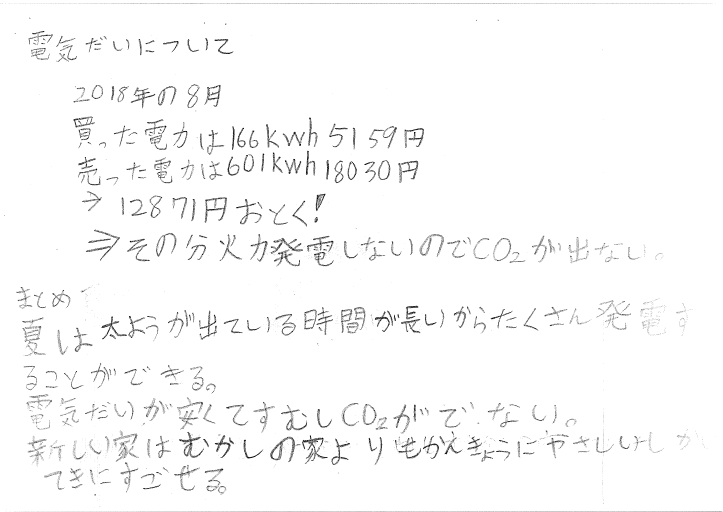 電気だいについて
2018年の8月
買った電力は166kwh 5159円
売った電力は601kwh 18030円
→ 12871円おとく!
⇒その分火力発電しないのでCO₂が出ない。
まとめ
夏は太ようが出ている時間が長いからたくさん発電す
ることができる。
電気だいが安くてすむしCO₂がでない。
新しい家はむかしの家よりもかんきょうにやさしいしかい
てきにすごせる。